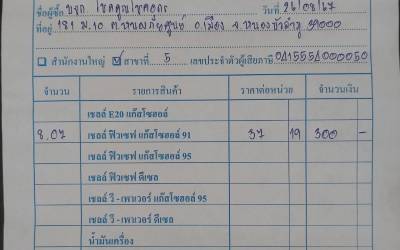 ชื่อผู้ซื้อ บจก. โชคคูณโชคถาวร วันที่ 26/08/67
ที่อยู่ 181 ม.10 ต.หนองภัยศูนย์ อ.เมือง จ.หนองบัวลำภู 39000
สำนักงานใหญ่ สาขาที่ 5 เลขประจำตัวผู้เสียภาษี 0415554000050
จำนวน รายการสินค้า ราคาต่อหน่วย จำนวนเงิน
เชลล์ E20 แก๊สโซฮอล์
8.07 เชลล์ ฟิวเซฟ แก๊สโซฮอล์ 91 37 19 300 -
เชลล์ ฟิวเซฟ แก๊สโซฮอล์ 95
เชลล์ ฟิวเซฟ ดีเซล
เชลล์ วี - เพาเวอร์ แก๊สโซฮอล์ 95
เชลล์ วี - เพาเวอร์ ดีเซล
น้ำมันเครื่อง